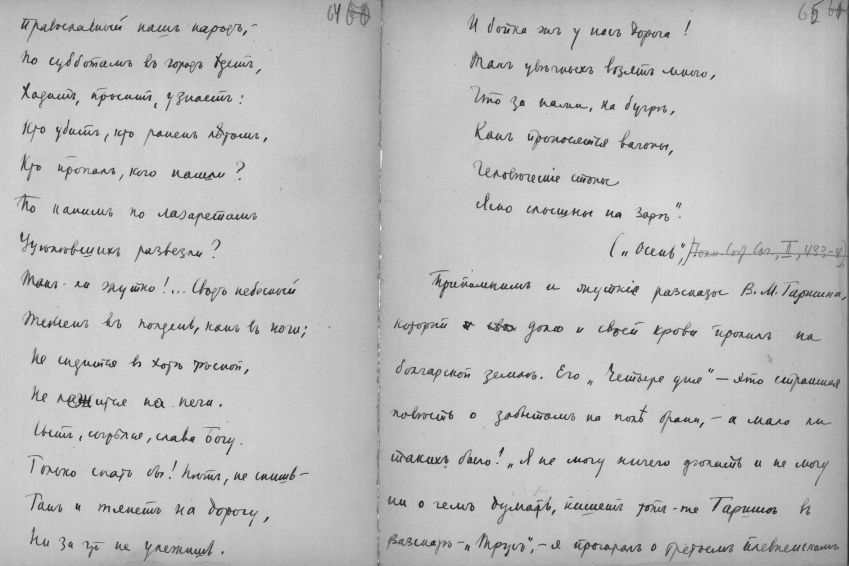 64
Православный нашъ народъ,-
По субботамъ въ городъ ѣдетъ,
Ходитъ, проситъ, узнаетъ:
Кто убитъ, кто раненъ лѣтомъ,
Кто пропалъ, кого нашли?
По какимъ-то лазаретамъ
Уцѣлѣвшихъ развезли?
Такъ-ли жутко!... Сводъ небесный
Теменъ въ полдень, какъ въ ночи;
Не сидится въ хатѣ тѣсной,
Не лежится на печи.
Сытъ, согрѣлся, слава Богу.
Только спать бы! Нѣтъ, не спишь-
Такъ и тянетъ на дорогу,
Ни за что не улежишь.
65
И бойка жъ у насъ дорога!
Такъ увѣчныхъ возятъ много,
Что за нами, на бугрѣ,
Какъ проносятся вагоны,
Человѣческіе стоны
Ясно слышны на зарѣ".
("Осень", Полн. Собр. Соч., II, 433-4)
Припомнимъ и жуткіе разсказы В. М. Гаршина,
который долю и своей крови пролилъ на
болгарской землѣ. Его "Четыре дня" - это страшная
повѣсть о забытомъ на полѣ брани, - а мало ли
такихъ было! "Я не могу ничего дѣлать и не могу
ни о чемъ думать, пишетъ тотъ-же Гаршинъ въ
разсказѣ - "Трусъ", - я прочиталъ о третьемъ плевненскомъ